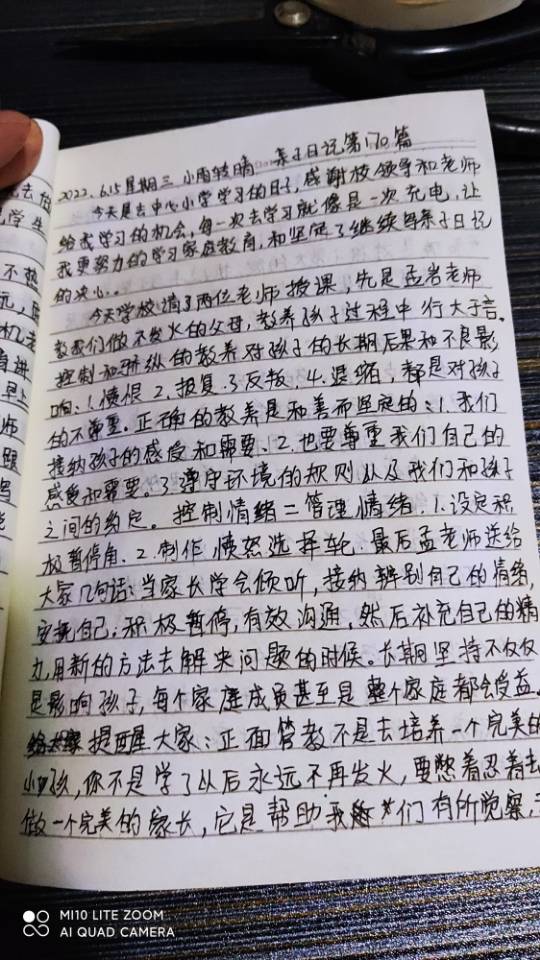 去做
学生
不热
元,
机
讲
早上
师
跟
2022.6.15星期三 小雨转晴 亲子日记第170篇
今天是去中心小学学习的日子,感谢校领导和老师
给我学习的机会,每一次去学习就像是一次充电,让
我更努力的学习家庭教育,和坚定了继续写亲子日记
的决心..
今天学校请了两位老师授课,先是孟岩老师
教我们做不发火的父母,教养孩子过程中行大于言。
控制和骄纵的教养对孩子的长期后果和不良影
响:1.愤恨 2.报复.3.反叛.4.退缩,都是对孩子
的不尊重.正确的教养是和善而坚定的:1.我们
接纳孩子的感受和需要、2.也要尊重我们自己的
感受和需要。3.遵守环境的规则以及我们和孩子
之间的约定。控制情绪=管理情绪.1.设定积
极暂停角.2.制作愤怒选择轮.最后孟老师送给
大家几句话:当家长学会倾听,接纳辨别自己的情绪,
安抚自己;积极暂停,有效沟通,然后补充自己的精
力,用新的方法去解决问题的时候。长期坚持不仅仅
是影响孩子,每个家庭成员甚至是整个家庭都会受益。
提醒大家:正面管教不是去培养一个完美的
小孩,你不是学了以后永远不再发火,要憋着忍着去
做一个完美的家长,它是帮助我们有所觉察,
MI10 LITE ZOOM
AI QUAD CAMERA